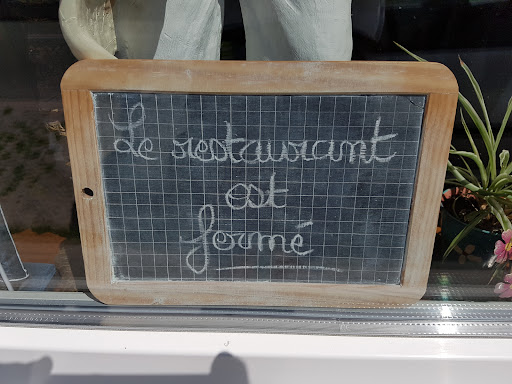 Le restaurant
est
fermé